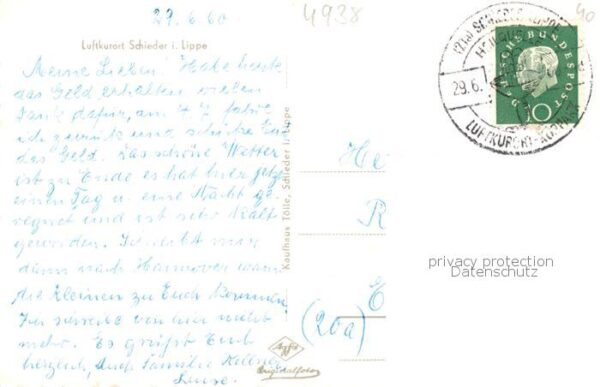 29.6.60
4938
40
Luftkurort Schieder i. Lippe
Meine Lieben! Habe heute
das Geld erhalten vielen
Dank dafür, am 4.7. fahre
ich zurück und schicke Euch
das Geld. Das schöne Wetter
ist zu Ende es hat hier jetzt
einen Tag u. eine Nacht ge-
regnet und ist sehr kalt
geworden. Schreibt mir
dann nach Hannover wann
die Kleinen zu Euch kommen
Ihr schreibt von mir nicht
mehr. Es grüßt Euch
herzlich, auch Familie
Luise.
Kaufhaus Tölle, Schieder i. Lippe
He
R
E
(20a)
Agfa
Originalfoto
(21a) SCHIEDER
29.6.
LUFTKURORT
DEUTSCHE BUNDESPOST
10
privacy protection
Datenschutz